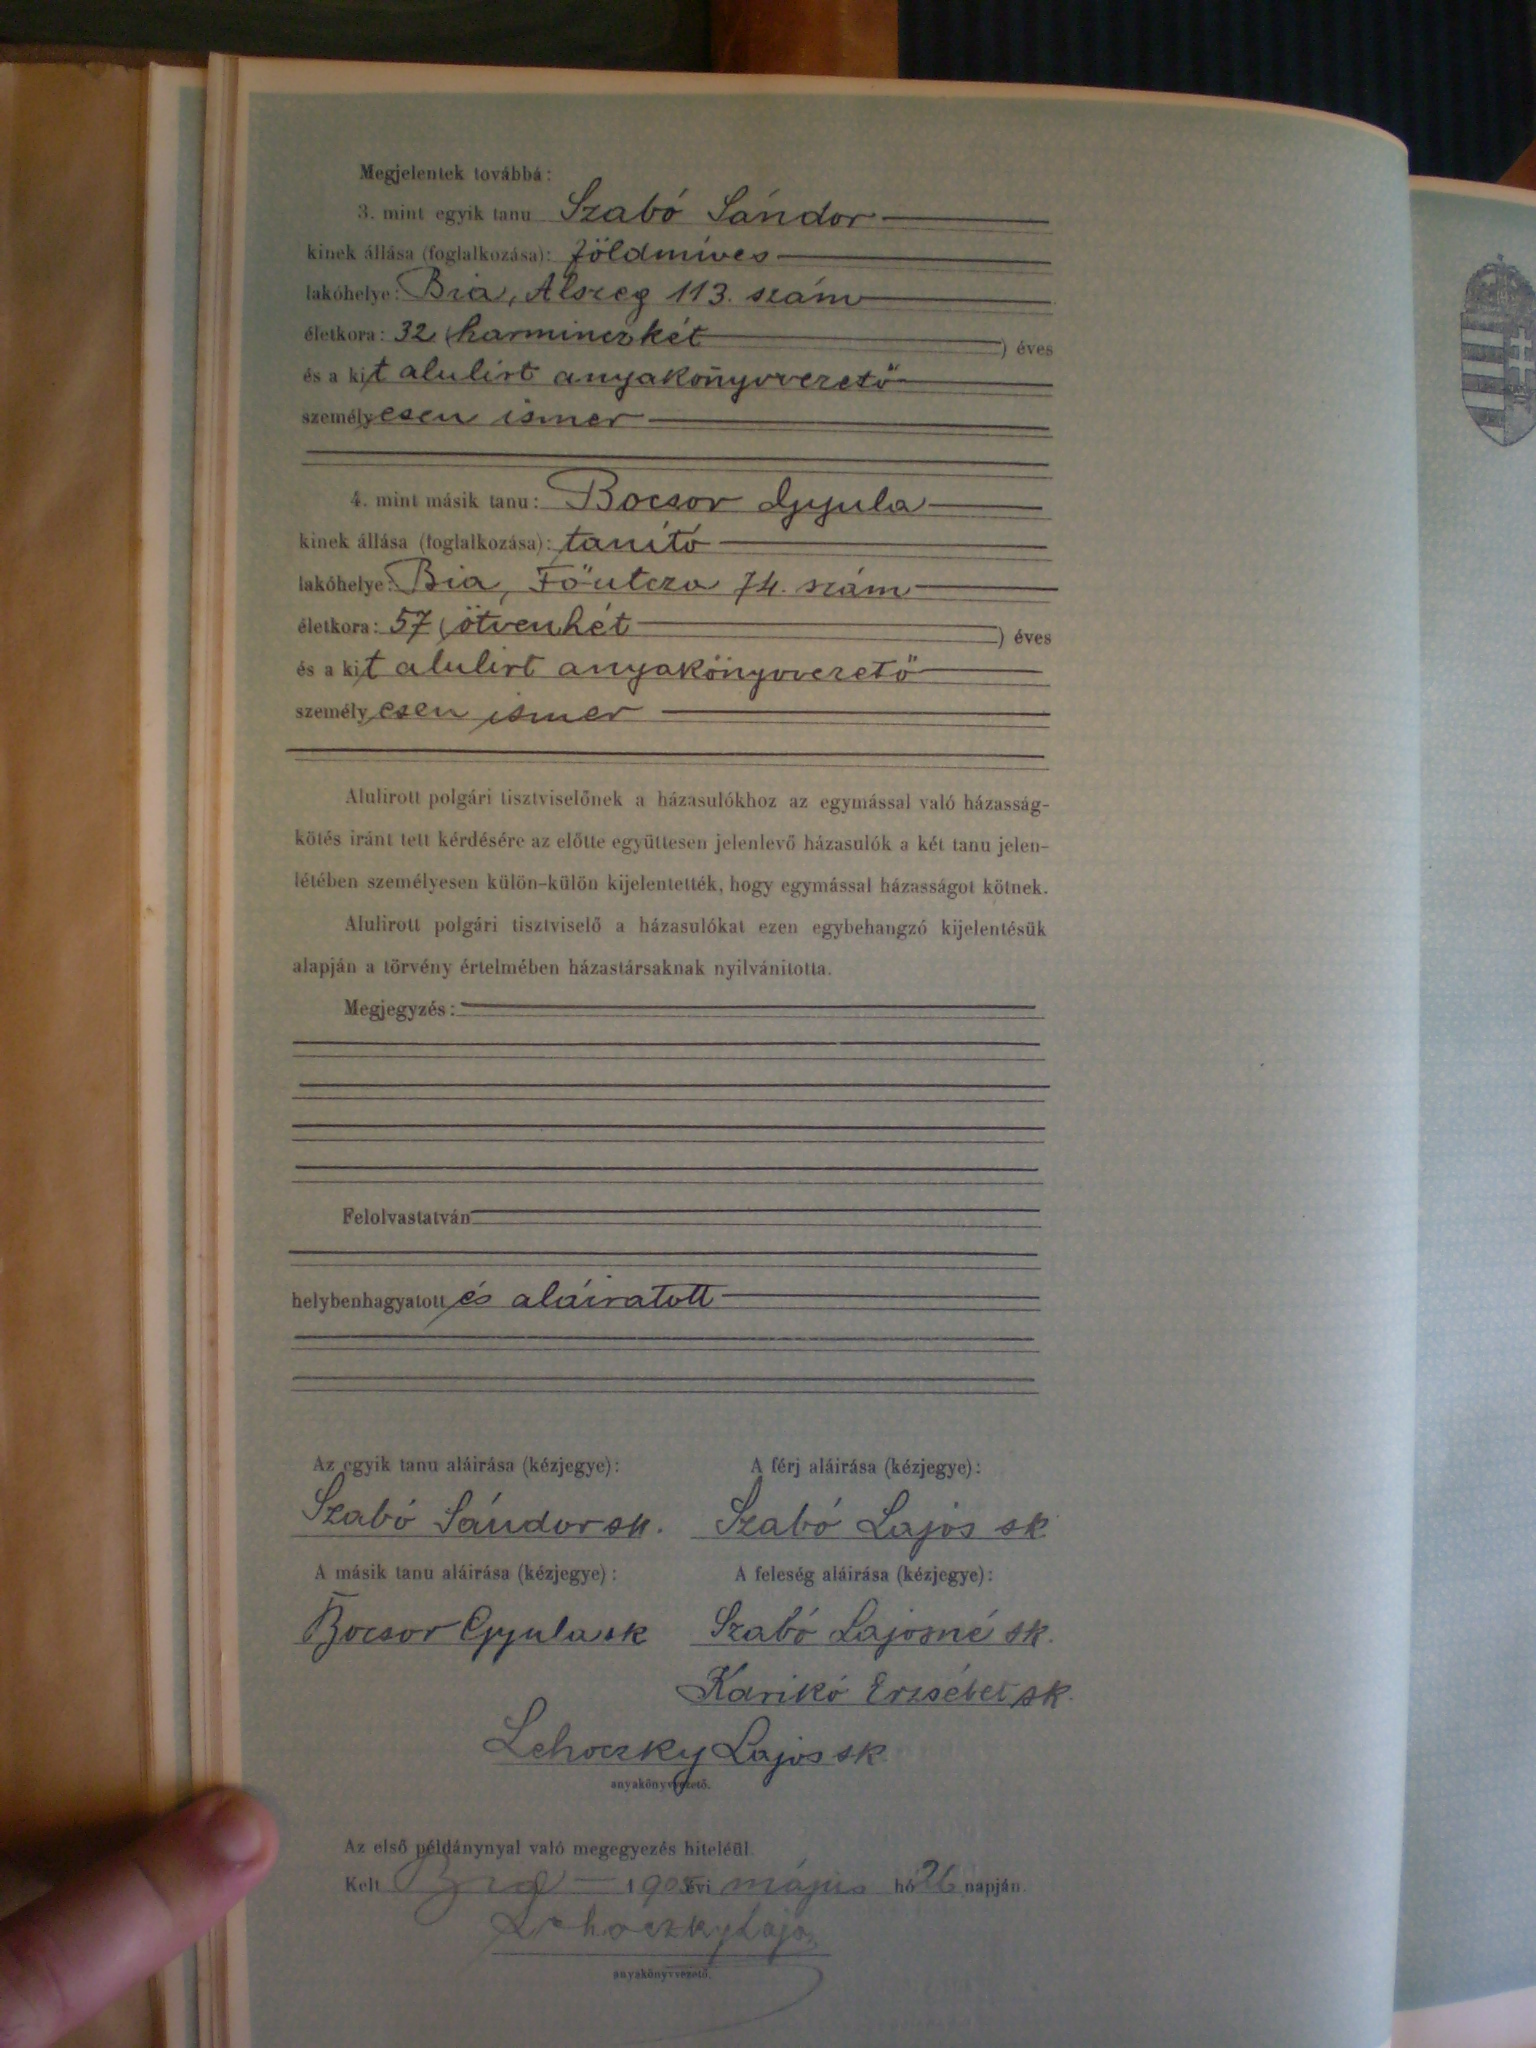 Megjelentek továbbá:
3. mint egyik tanu Szabó Sándor
kinek állása (foglalkozása): földmíves
lakóhelye: Bia, Alszeg 113. szám
életkora: 32 (harminczkét ) éves
és a kit alulirt anyakönyvvezető
személyesen ismer
4. mint másik tanu: Bocsor Gyula
kinek állása (foglalkozása): tanító
lakóhelye: Bia, Főutcza 74. szám
életkora: 57 (ötvenhét ) éves
és a kit alulirt anyakönyvvezető
személyesen ismer
Alulirott polgári tisztviselőnek a házasulókhoz az egymással való házasság-
kötés iránt tett kérdésére az előtte együttesen jelenlevő házasulók a két tanu jelen-
létében személyesen külön-külön kijelentették, hogy egymással házasságot kötnek.
Alulirott polgári tisztviselő a házasulókat ezen egybehangzó kijelentésük
alapján a törvény értelmében házastársaknak nyilvánitotta.
Megjegyzés:
Felolvastatván
helybenhagyatott és aláiratott
Az egyik tanu aláirása (kézjegye): A férj aláirása (kézjegye):
Szabó Sándor sk. Szabó Lajos sk
A másik tanu aláirása (kézjegye): A feleség aláirása (kézjegye):
Bocsor Gyula sk Szabó Lajosné sk.
Karikó Erzsébet sk.
Lehoczky Lajos sk
anyakönyvvezető.
Az első példánynyal való megegyezés hiteléül.
Kelt Bia 1908 évi május hó 26 napján.
Lehoczky Lajos
anyakönyvvezető.